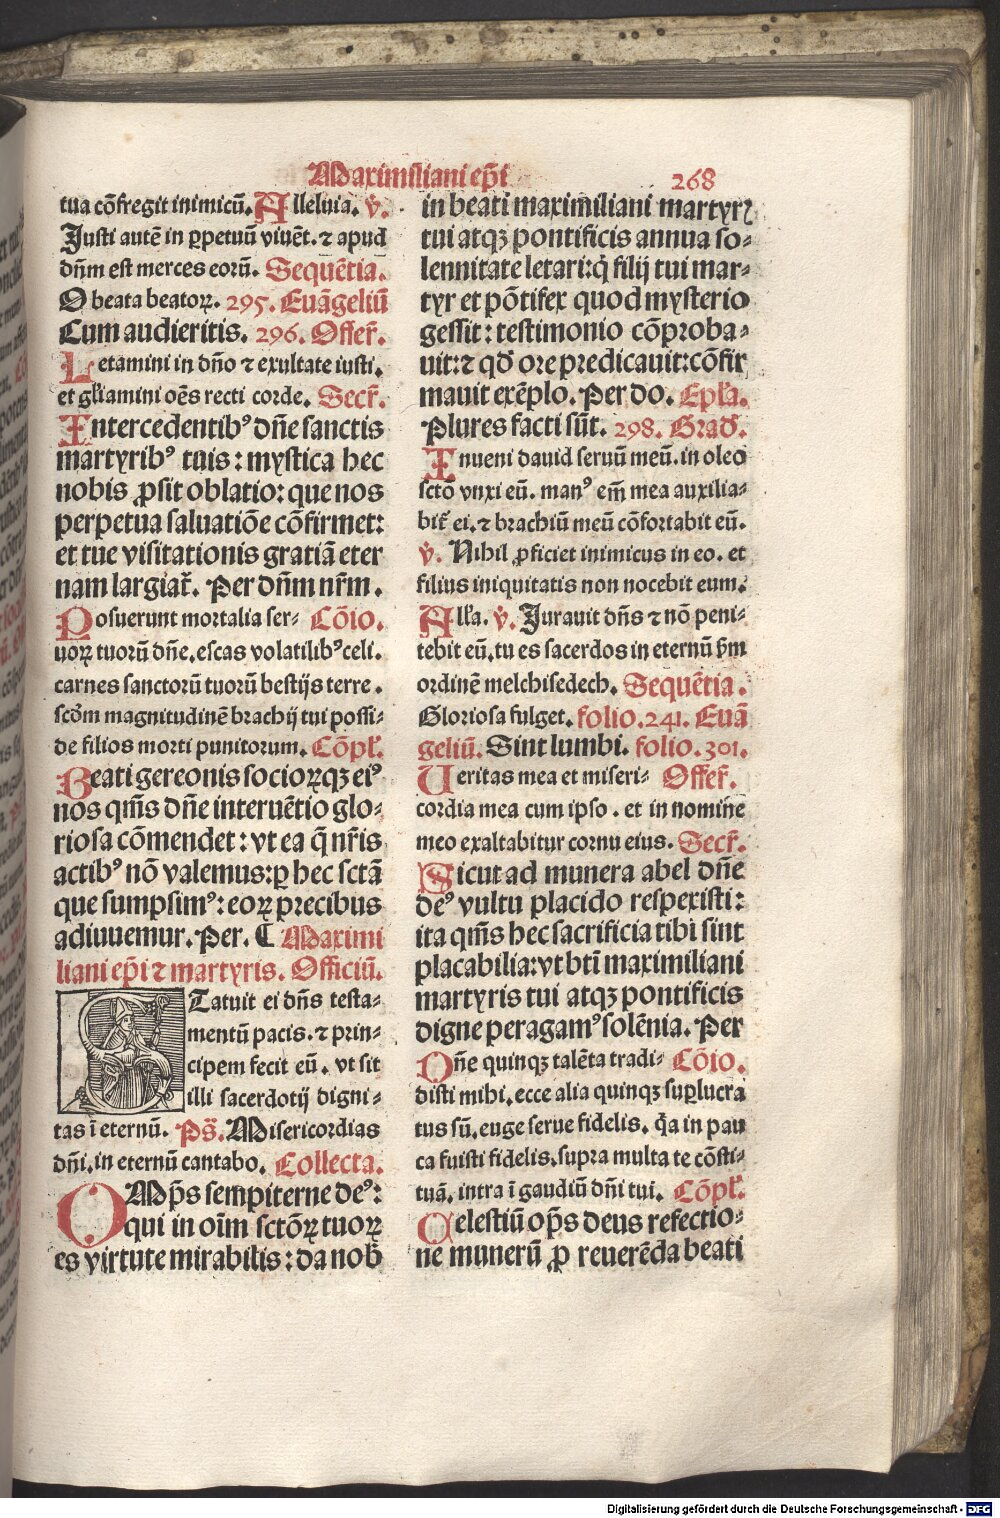 Maximiliani ep̄i 268
tua cōfregit inimicū. Alleluia. v̄.
Justi autē in ꝑpetuū viuēt. ⁊ apud
dn̄m est merces eorū. Sequētia.
O beata beatoꝝ. 295. Euāgeliū
Cum audieritis. 296. Offer̄.
Letamini in dn̄o ⁊ exultate iusti.
et gl̄iamini oēs recti corde. Secr̄.
Intercedentibꝰ dn̄e sanctis
martyribꝰ tuis: mystica hec
nobis ꝓsit oblatio: que nos
perpetua saluatiōe cōfirmet:
et tue visitationis gratiā eter
nam largiat̄. Per dn̄m nr̄m.
Posuerunt mortalia ser- Cōio.
uoꝝ tuorū dn̄e. escas volatilibꝰ celi.
carnes sanctorū tuorū bestijs terre.
scd̄m magnitudinē brachij tui possi-
de filios morti punitorum. Cōpl̄.
Beati gereonis socioꝝqꝫ eiꝰ
nos qm̄s dn̄e interuētio glo-
riosa cōmendet: vt ea q̄ nr̄is
actibꝰ nō valemus: ꝑ hec sctā
que sumpsimꝰ: eoꝝ precibus
adiuuemur. Per. ¶ Maximi
liani ep̄i ⁊ martyris. Officiū.
Statuit ei dn̄s testa-
mentū pacis. ⁊ prin-
cipem fecit eū. vt sit
illi sacerdotij digni-
tas ī eternū. Ps̄. Misericordias
dn̄i. in eternū cantabo. Collecta.
OMp̄s sempiterne deꝰ:
qui in oīm sctōꝝ tuoꝝ
es virtute mirabilis: da nob̄
in beati maximiliani martyrꝭ
tui atqꝫ pontificis annua so-
lennitate letari: q̄ filij tui mar-
tyr et pōtifex quod mysterio
gessit: testimonio cōproba-
uit: ⁊ qd̄ ore predicauit: cōfir
mauit exēplo. Per do. Epl̄a.
Plures facti sūt. 298. Grad̄.
Inueni dauid seruū meū. in oleo
sctō vnxi eū. manꝰ em̄ mea auxilia-
bit̄ ei. ⁊ brachiū meū cōfortabit eū.
v̄. Nihil ꝓficiet inimicus in eo. et
filius iniquitatis non nocebit eum.
All̄a. v̄. Jurauit dn̄s ⁊ nō peni-
tebit eū. tu es sacerdos in eternū ẜm
ordinē melchisedech. Sequētia.
Gloriosa fulget. folio. 241. Euā
geliū. Sint lumbi. folio. 301.
Ueritas mea et miseri- Offer̄.
cordia mea cum ipso. et in nomine
meo exaltabitur cornu eius. Secr̄.
Sicut ad munera abel dn̄e
deꝰ vultu placido respexisti:
ita qm̄s hec sacrificia tibi sint
placabilia: vt btī maximiliani
martyris tui atqꝫ pontificis
digne peragamꝰ solēnia. Per
Dn̄e quinqꝫ talēta tradi- Cōio.
disti mihi. ecce alia quinqꝫ suꝑlucra
tus sū. euge serue fidelis. q̄a in pau
ca fuisti fidelis. supra multa te cōsti-
tuā. intra ī gaudiū dn̄i tui. Cōpl̄.
Celestiū op̄s deus refectio-
ne munerū ꝓ reuerēda beati
Digitalisierung gefördert durch die Deutsche Forschungsgemeinschaft - DFG